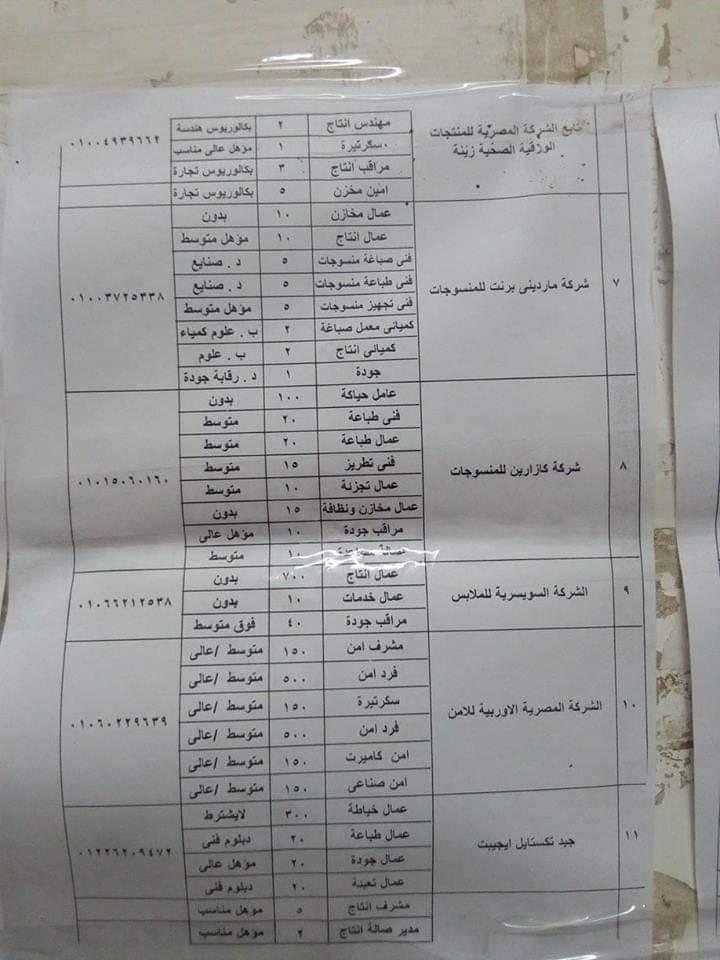 تابع الشركة المصرية للمنتجات الورقية الصحية زينة
مهندس انتاج ٢ بكالوريوس هندسة
سكرتيرة ١ مؤهل عالى مناسب
مراقب انتاج ٣ بكالوريوس تجارة
امين مخزن ٥ بكالوريوس تجارة
٠١٠٠٤٩٣٩٦٦٢
٧ شركة ماردينى برنت للمنسوجات
عمال مخازن ١٠ بدون
عمال انتاج ١٠ مؤهل متوسط
فنى صباغة منسوجات ٥ د . صنايع
فنى طباعة منسوجات ٥ د . صنايع
فنى تجهيز منسوجات ٥ مؤهل متوسط
كميائى معمل صباغة ٢ ب . علوم كمياء
كميائى انتاج ٢ ب . علوم
جودة ١ د . رقابة جودة
٠١٠٠٣٧٢٥٣٣٨
٨ شركة كازارين للمنسوجات
عامل حياكة ١٠٠ بدون
فنى طباعة ٢٠ متوسط
عمال طباعة ٢٠ متوسط
فنى تطريز ١٥ متوسط
عمال تجزئة ١٠ متوسط
عمال مخازن ونظافة ١٥ بدون
مراقب جودة ١٠ مؤهل عالى
١٠ متوسط
٠١٠١٥٠٦٠١٦٠
٩ الشركة السويسرية للملابس
عمال انتاج ٧٠٠ بدون
عمال خدمات ١٠ بدون
مراقب جودة ٤٠ فوق متوسط
٠١٠٦٦٢١٢٥٣٨
١٠ الشركة المصرية الاوربية للامن
مشرف امن ١٥٠ متوسط /عالى
فرد امن ٥٠٠ متوسط /عالى
سكرتيرة ١٥٠ متوسط /عالى
فرد امن ٥٠٠ متوسط /عالى
امن كاميرت ١٥٠ متوسط /عالى
امن صناعى ١٥٠ متوسط /عالى
٠١٠٦٠٢٢٩٦٣٩
١١ جيد تكستايل ايجيبت
عمال خياطة ٣٠٠ لايشترط
عمال طباعة ٢٠ دبلوم فنى
عمال جودة ٢٠ مؤهل عالى
عمال تعبئة ٢٠ دبلوم فنى
٠١٢٢٦٢٠٩٤٧٢
مشرف انتاج ٥ مؤهل مناسب
مدير صالة انتاج ٢ مؤهل مناسب